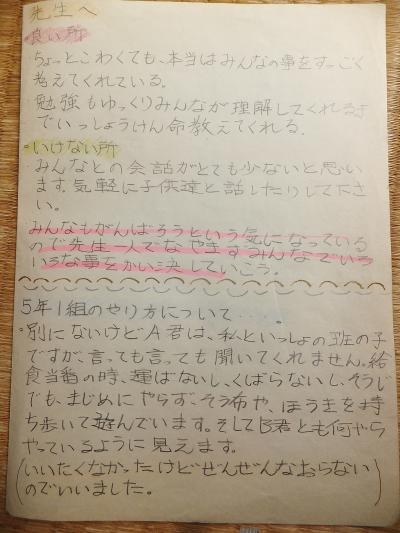 先生へ
良い所
ちょっとこわくても、本当はみんなの事をすっごく
考えてくれている。
勉強もゆっくりみんなが理解してくれるま
でいっしょうけん命教えてくれる。
・いけない所
みんなとの会話がとても少ないと思い
ます。気軽に子供達と話したりして下さ
い。
みんなもがんばろうという気になっている
ので先生一人でなやまずみんなでいろ
いろな事をかい決していこう。
5年1組のやり方について・・・・。
・別にないけどA君は、私といっしょの班の子
ですが、言っても言っても聞いてくれません。給
食当番の時、運ばないし、くばらないし、そうじ
でも、まじめにやらず、ぞう布や、ほうきを持
ち歩いて遊んでいます。そしてB君とも何やら
やっているように見えます。
(いいたくなかったけどぜんぜんなおらない
のでいいました。)